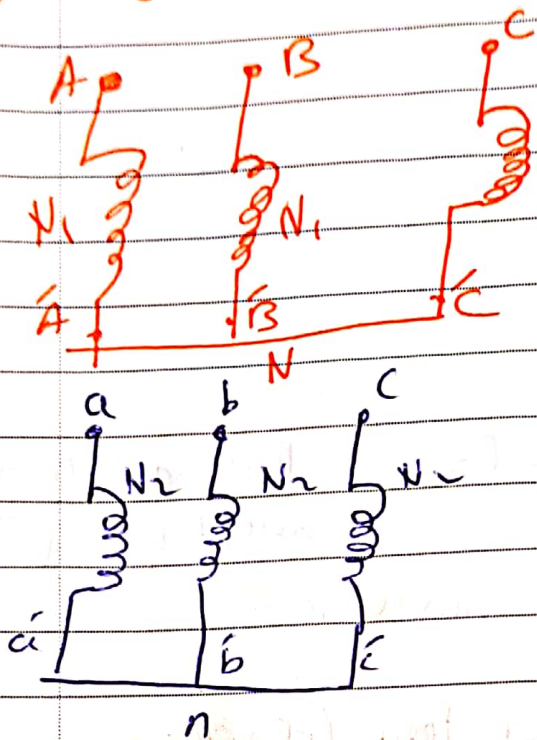 A B C
N₁ N₁
A' B' C'
N
a b c
N₂ N₂ N₂
a' b' c'
n